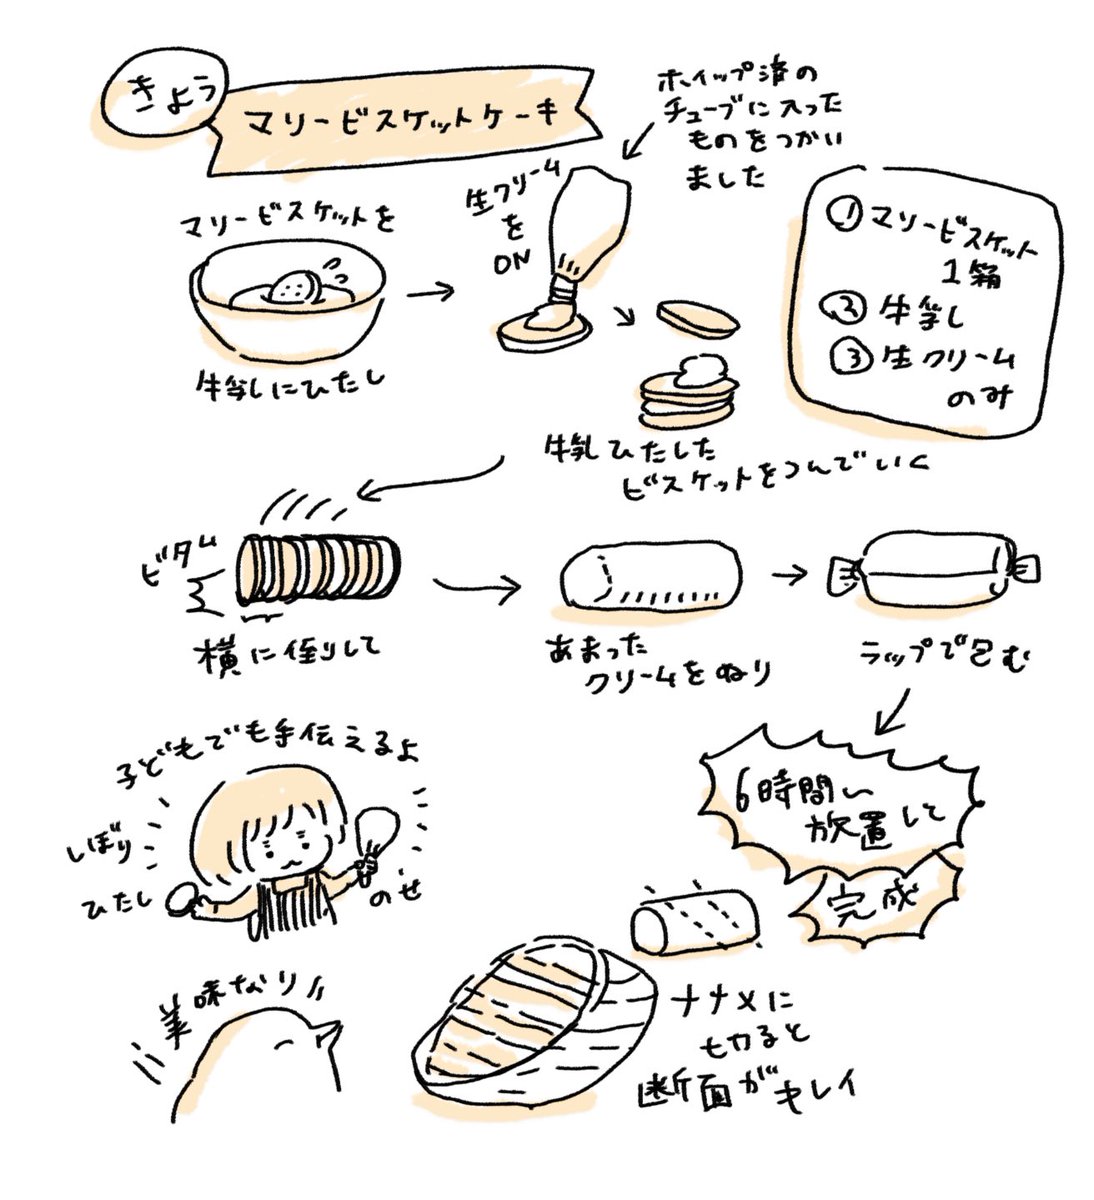 きょう
マリービスケットケーキ
ホイップ済の
チューブに入った
ものをつかい
ました
マリービスケットを
牛乳にひたし
生クリーム
を
ON
① マリービスケット
1箱
② 牛乳
③ 生クリーム
のみ
牛乳ひたした
ビスケットをつんでいく
ビタム
横に倒して
あまった
クリームをぬり
ラップで包む
6時間
放置して
完成
子どもでも手伝えるよ
しぼり
ひたし
のせ
美味なり
ナナメに
切ると
断面がキレイ